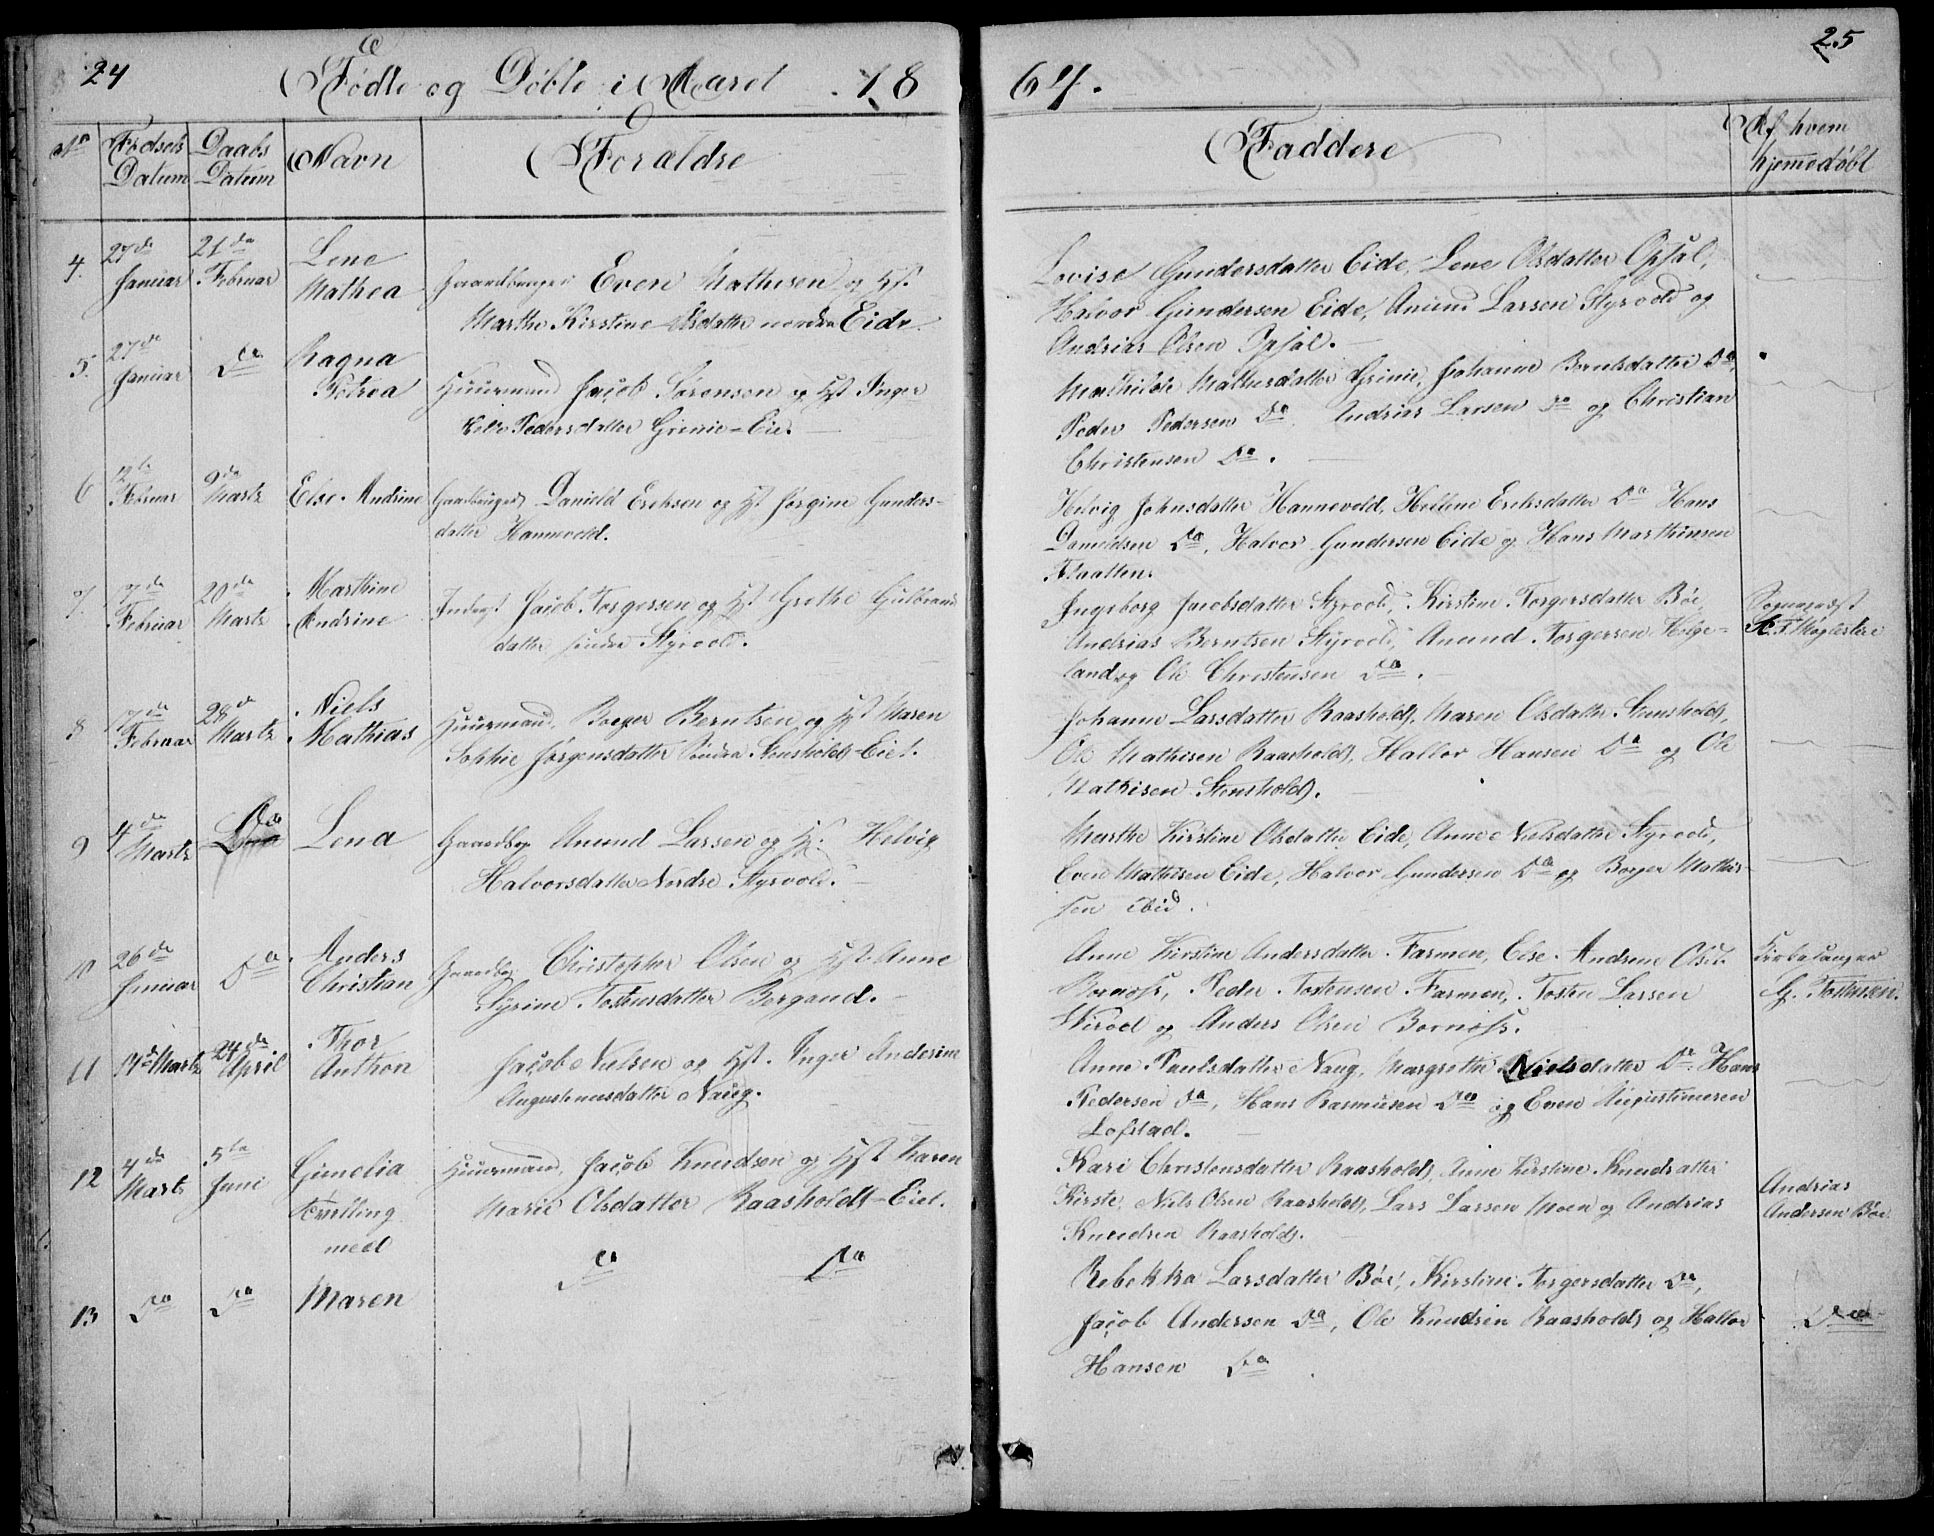 24
Fødte og Døbte i Aaret 18
64.
25
No
Fødsels Datum
Daabs Datum
Navn
Forældre
Faddere
Af hvem hjemmedøbt
4. 27de Januar 21de Februar Lene Mathea
Gaardbruger Even Mathisen og Hst.
Marthe Kirstine Olsdatter nordre Eide.
Lovise Gundersdatter Eide, Lene Olsdatter Opsal,
Halvor Gundersen Eide, Anund Larsen Styrvold og
Andrias Olsen Opsal.
5. 27de Januar Do Ragna Petrea
Huusmand Jacob Sørensen og Hst Inger
Pedersdatter Grinie-Eie.
Mathilde Mathisdatter Grinie, Johanne Berntsdatter Do,
Peder Pedersen Do, Andrias Larsen Do og Christian
Christensen Do.
6 12te Februar 9de Martz Else Andrine
Gaardbruger Danield Eriksen og Hst Jørgine Gunders-
datter Hannevold.
Helvig Johnsdatter Hannevold, Hellene Eriksdatter Do Hans
Danieldsen Do, Halvor Gundersen Eide og Hans Marthinsen
Flaatten.
7. 7de Februar 20de Martz Marthine Andrine
Inderst Jacob Torgersen og Hst Grethe Gulbrand
datter søndre Styrvold.
Ingeborg Jacobsdatter Styrvold, Kirstine Torgersdatter Bøe
Andrias Berntsen Styrvold, Anund Torgersen Helge-
land og Ole Christensen Do.
Sognepræst
8 17de Februar 28de Martz Niels Mathias
Huusmand, Borger Berntsen og Hst Maren
Sophie Jørgensdatter Søndre Stensholdt-Eiet.
Johanne Larsdatter Raasholdt, Maren Olsdatter Stensholdt,
Ole Mathisen Raasholdt, Hallor Hansen Do og Ole
Mathisen Stensholdt.
9 4de Martz Do Lena
Gaardbr. Anund Larsen og H. Helvig
Halvorsdatter Nordre Styrvold.
Marthe Kirstine Olsdatter Eide, Anne Nielsdatter Styrvold,
Even Mathisen Eide, Halvor Gundersen Do og Borger Mathis-
sen ibid.
10 26de Januar Do Anders Christian
Gaardbr Christopher Olsen og Hst Anne
Syrine Tostensdatter Bergand.
Anne Kirstine Andersdatter Farmen, Else Andrine Olsd.
Bornøss, Peder Tostensen Farmen, Tosten Larsen
og Anders Olsen Bornøss.
Kirkesanger
G. Tostensen.
11 14de Martz 24de April Thor Anthon
Jacob Nielsen og Hst. Inger Anderine
Augustinusdatter Naug.
Anne Paulsdatter Naug, Margrethe Nielsdatter Do. Hans
Pedersen Do, Hans Rasmusen Do og Even Augustinusen
Lofstad.
12 4de Marts 5te Juni Gunelia Tvilling med
Huusmand, Jacob Knudsen og Hst Karen
Marie Olsdatter Raasholdt-Eiet.
Kari Christensdatter Raasholdt, Anne Kirstine Knudsdatter
Kirste, Niels Olsen Raasholdt, Lars Larsen Moen og Andrias
Knudsen Raasholdt.
Andrias
Andersen Bøe
13 Do Do Maren
Do Do
Rebekka Larsdatter Bøe, Kirstine Torgersdatter Do,
Jacob Andersen Do, Ole Knudsen Raasholdt og Hallor
Hansen Do
Do